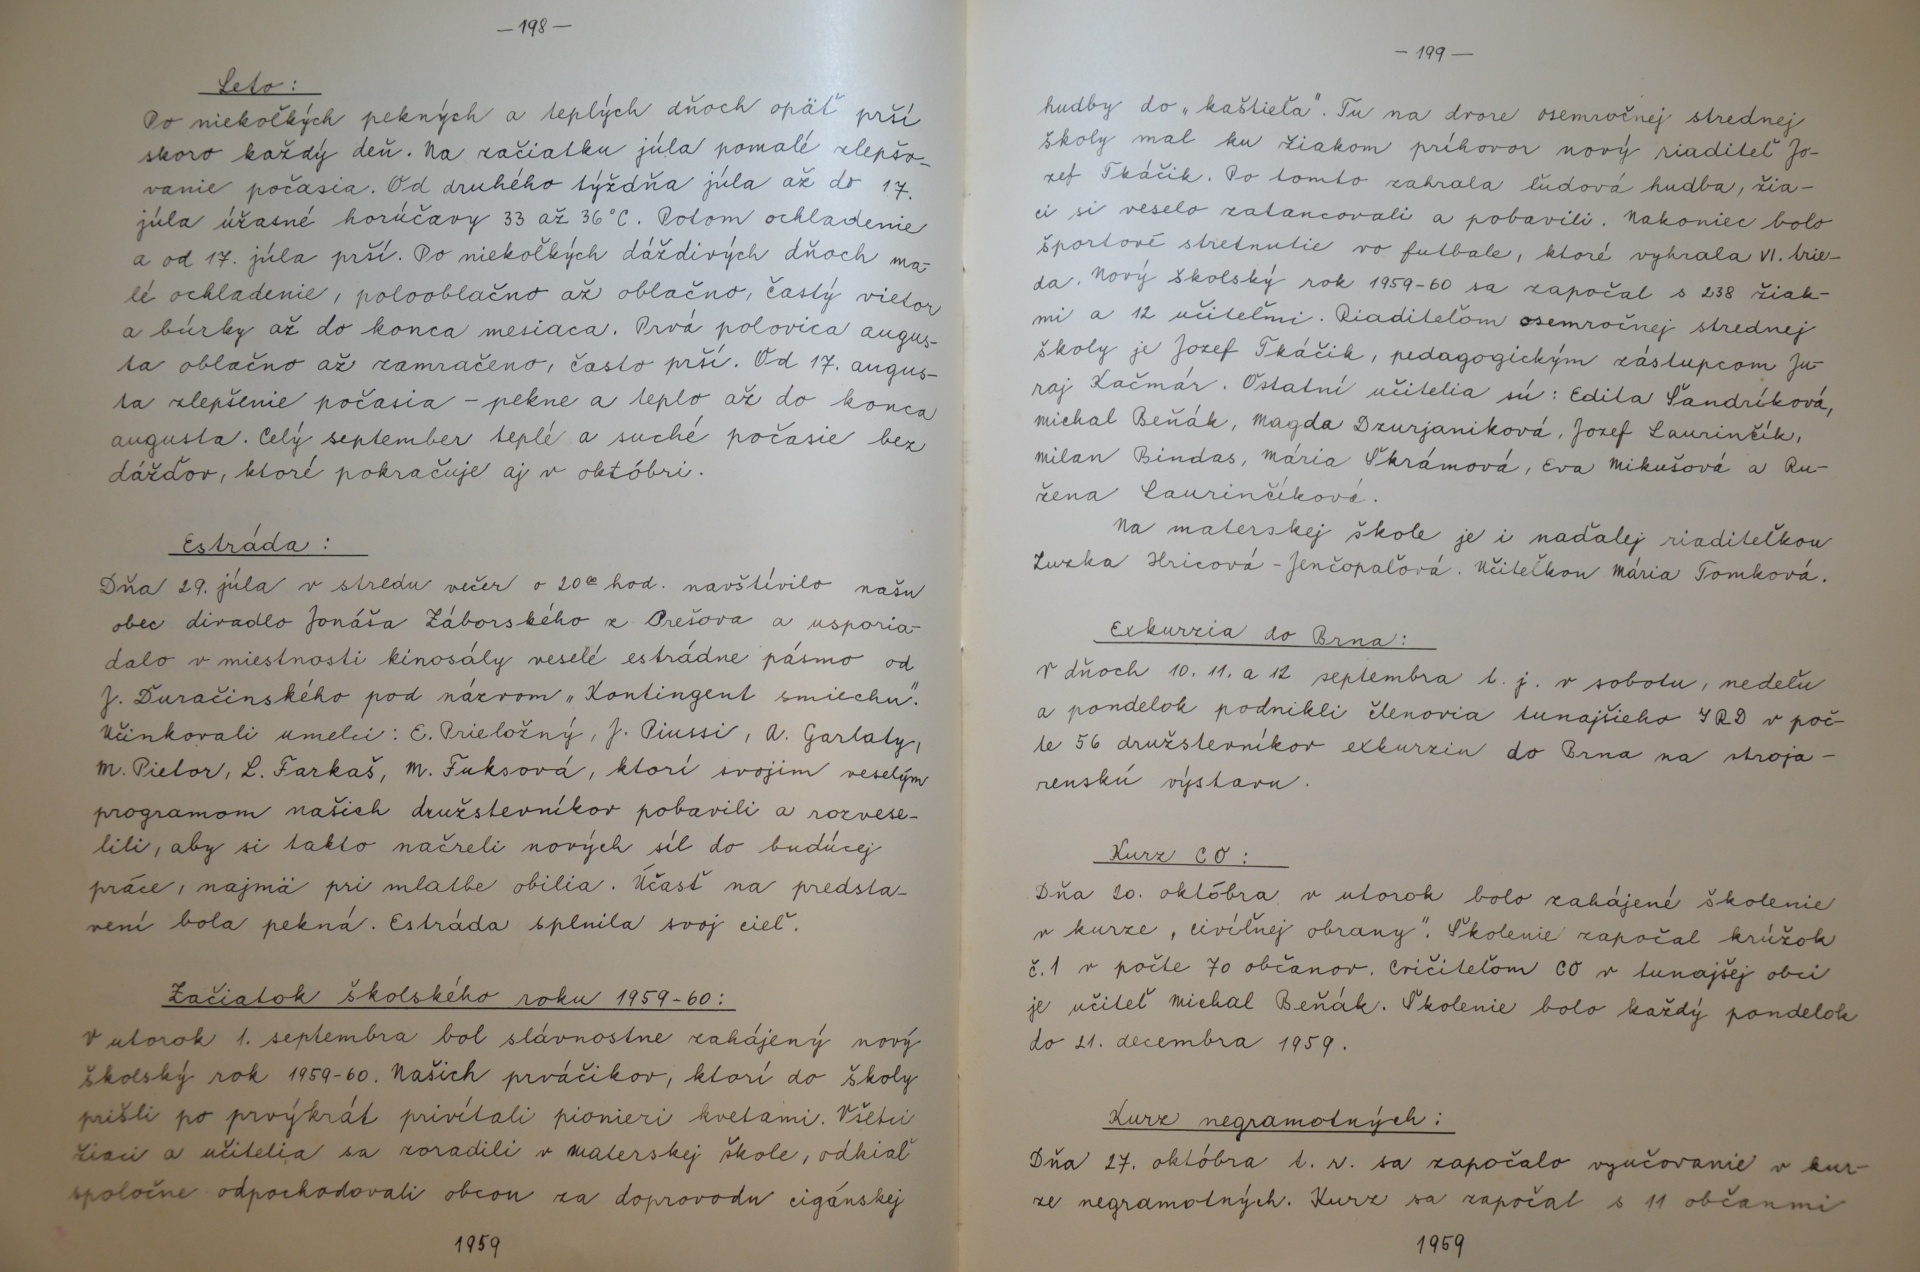 — 198 —
Leto:
Po niekoľkých pekných a teplých dňoch opäť prší
skoro každý deň. Na začiatku júla pomalé zlepšo-
vanie počasia. Od druhého týždňa júla až do 17.
júla úžasné horúčavy 33 až 36°C. Potom ochladenie
a od 17. júla prší. Po niekoľkých dáždivých dňoch ma-
lé ochladenie, polooblačno až oblačno, častý vietor
a búrky až do konca mesiaca. Prvá polovica augus-
ta oblačno až zamračeno, často prší. Od 17. augus-
ta zlepšenie počasia - pekne a teplo až do konca
augusta. Celý september teplé a suché počasie bez
dážďov, ktoré pokračuje aj v októbri.
Estráda:
Dňa 29. júla v stredu večer o 20 hod. navštívilo našu
obec divadlo Jonáša Záborského z Prešova a usporia-
dalo v miestnosti kinosály veselé estrádne pásmo od
J. Ďuračinského pod názvom „Kontingent smiechu".
Účinkovali umelci: E. Prieložný, J. Piussi, A. Garlaty,
M. Pietor, L. Farkaš, M. Fuksová, ktorí svojim veselým
programom našich družstevníkov pobavili a rozvese-
lili, aby si takto načreli nových síl do budúcej
práce, najmä pri mlatbe obilia. Účasť na predsta-
vení bola pekná. Estráda splnila svoj cieľ.
Začiatok školského roku 1959-60:
V utorok 1. septembra bol slávnostne zahájený nový
školský rok 1959-60. Našich prváčikov, ktorí do školy
prišli po prvýkrát privítali pionieri kvetami. Všetci
žiaci a učitelia sa zoradili v materskej škole, odkiaľ
spoločne odpochodovali obcou za doprovodu cigánskej
1959
— 199 —
hudby do „kaštieľa". Tu na dvore osemročnej strednej
školy mal ku žiakom príhovor nový riaditeľ Jo-
zef Tkáčik. Po tomto zahrala ľudová hudba, žia-
ci si veselo zatancovali a pobavili. Nakoniec bolo
športové stretnutie vo futbale, ktoré vyhrala VI. trie-
da. Nový školský rok 1959-60 sa započal s 238 žiak-
mi a 12 učiteľmi. Riaditeľom osemročnej strednej
školy je Jozef Tkáčik, pedagogickým zástupcom Ju-
raj Kačmár. Ostatní učitelia sú: Edita Šandríková,
Michal Beňák, Magda Dzurjaniková, Jozef Laurinčík,
Milan Bindas, Mária Škrámová, Eva Mikušová a Ru-
žena Laurinčíková.
Na materskej škole je i naďalej riaditeľkou
Zuzka Hricová - Jenčopaľová. Učiteľkou Mária Tomková.
Exkurzia do Brna:
V dňoch 10. 11. a 12 septembra t. j. v sobotu, nedeľu
a pondelok podnikli členovia tunajšieho JRD v poč-
te 56 družstevníkov exkurziu do Brna na stroja-
renskú výstavu.
Kurz CO:
Dňa 20. októbra v utorok bolo zahájené školenie
v kurze „civíľnej obrany". Školenie započal krúžok
č. 1 v počte 70 občanov. Cvičiteľom CO v tunajšej obci
je učiteľ Michal Beňák. Školenie bolo každý pondelok
do 21. decembra 1959.
Kurz negramotných:
Dňa 27. októbra t. r. sa započalo vyučovanie v kur-
ze negramotných. Kurz sa započal s 11 občanmi
1959